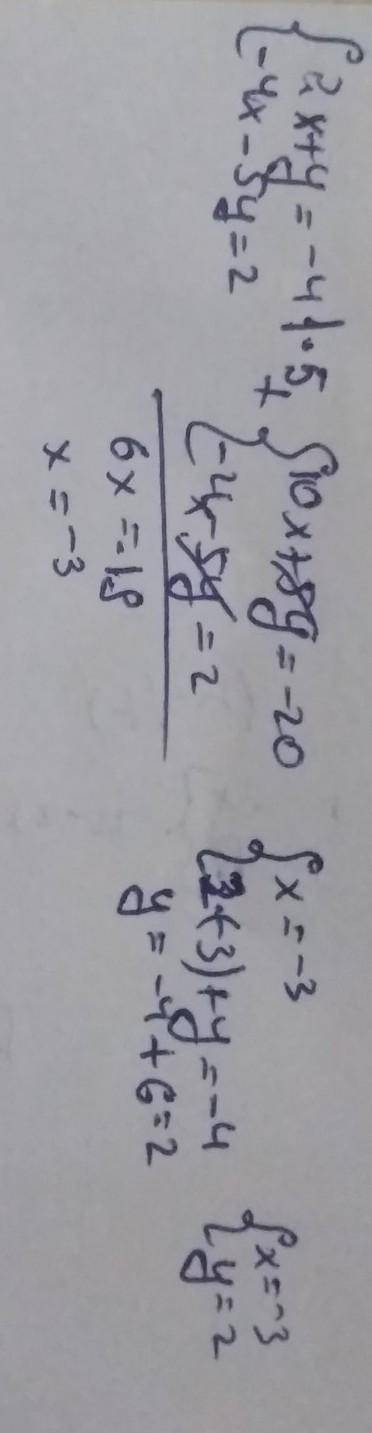 {2x+y=-4 |·5
{-4x-5y=2
+ {10x+5y=-20
{-4x-5y=2
6x=-18
x=-3
{x=-3
{2·(-3)+y=-4
y=-4+6=2
{x=-3
{y=2